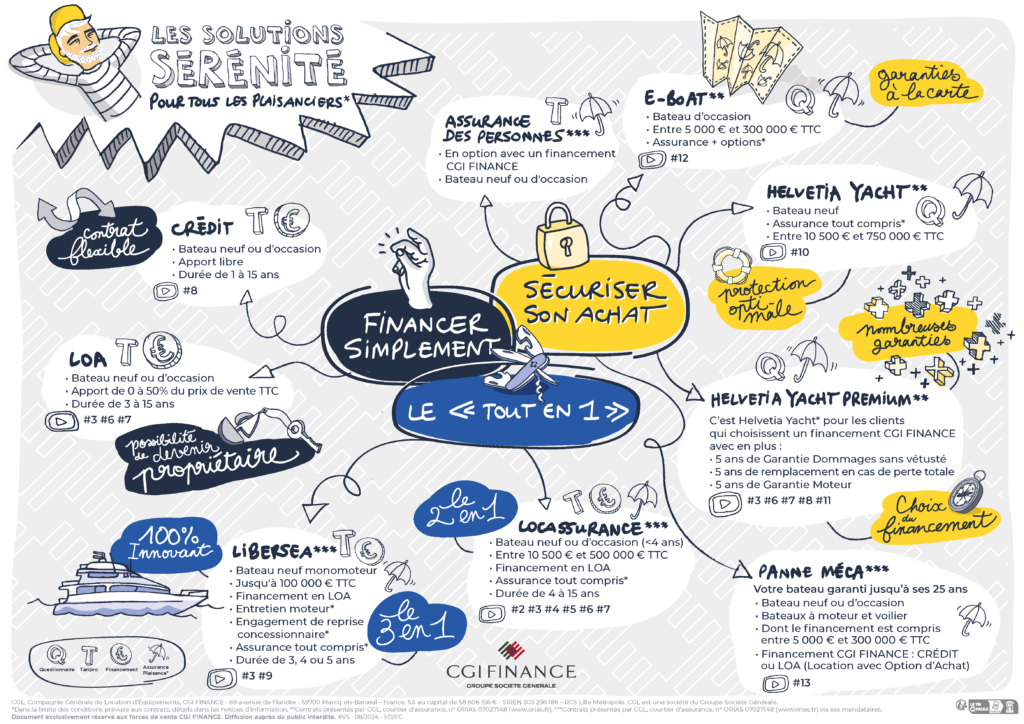 LES SOLUTIONS
SÉRÉNITÉ
POUR TOUS LES PLAISANCIERS*
ASSURANCE
DES PERSONNES***
• En option avec un financement
CGI FINANCE
• Bateau neuf ou d'occasion
E-BOAT**
• Bateau d'occasion
• Entre 5 000 € et 300 000 € TTC
• Assurance + options*
#12
garanties
à la carte
HELVETIA YACHT**
• Bateau neuf
• Assurance tout compris*
• Entre 10 500 € et 750 000 € TTC
#10
protection
opti-
male
nombreuses
garanties
contrat
flexible
CRÉDIT
• Bateau neuf ou d'occasion
• Apport libre
• Durée de 1 à 15 ans
#8
FINANCER
SIMPLEMENT
SÉCURISER
SON ACHAT
LE « TOUT EN 1 »
LOA
• Bateau neuf ou d'occasion
• Apport de 0 à 50% du prix de vente TTC
• Durée de 3 à 15 ans
#3 #6 #7
possibilité
de devenir
propriétaire
HELVETIA YACHT PREMIUM**
C'est Helvetia Yacht* pour les clients
qui choisissent un financement CGI FINANCE
avec en plus :
• 5 ans de Garantie Dommages sans vétusté
• 5 ans de remplacement en cas de perte totale
• 5 ans de Garantie Moteur
#3 #6 #7 #8 #11
Choix
du
financement
100%
Innovant
LIBERSEA***
• Bateau neuf monomoteur
• Jusqu'à 100 000 € TTC
• Financement en LOA
• Entretien moteur*
• Engagement de reprise
concessionnaire*
• Assurance tout compris*
• Durée de 3, 4 ou 5 ans
#3 #9
le
3 en 1
le
2 en 1
LOCASSURANCE***
• Bateau neuf ou d'occasion (<4 ans)
• Entre 10 500 € et 500 000 € TTC
• Financement en LOA
• Assurance tout compris*
• Durée de 4 à 15 ans
#2 #3 #4 #5 #6 #7
PANNE MÉCA***
Votre bateau garanti jusqu'à ses 25 ans
• Bateau neuf ou d'occasion
• Bateaux à moteur et voilier
• Dont le financement est compris
entre 5 000 € et 300 000 € TTC
• Financement CGI FINANCE : CRÉDIT
ou LOA (Location avec Option d'Achat)
#13
Questionnaire
Taripro
Financement
Assurance
Plaisance*
CGI FINANCE
GROUPE SOCIETE GENERALE
CGL, Compagnie Générale de Location d'Équipements, CGI FINANCE - 69 avenue de Flandre - 59700 Marcq-en-Barœul - France. SA au capital de 58 606 156 € - SIREN 303 236 186 - RCS Lille Métropole. CGL est une société du Groupe Société Générale.
*Dans la limite des conditions prévues aux contrats, détails dans les notices d'information. **Contrats présentés par CGL, courtier d'assurance, n° ORIAS 07027148 (www.orias.fr). ***Contrats présentés par CGL, courtier d'assurance, n° ORIAS 07027148 (www.orias.fr) via ses mandataires.
Document exclusivement réservé aux forces de vente CGI FINANCE. Diffusion auprès du public interdite. #V5 - 08/2024 - VD/FC